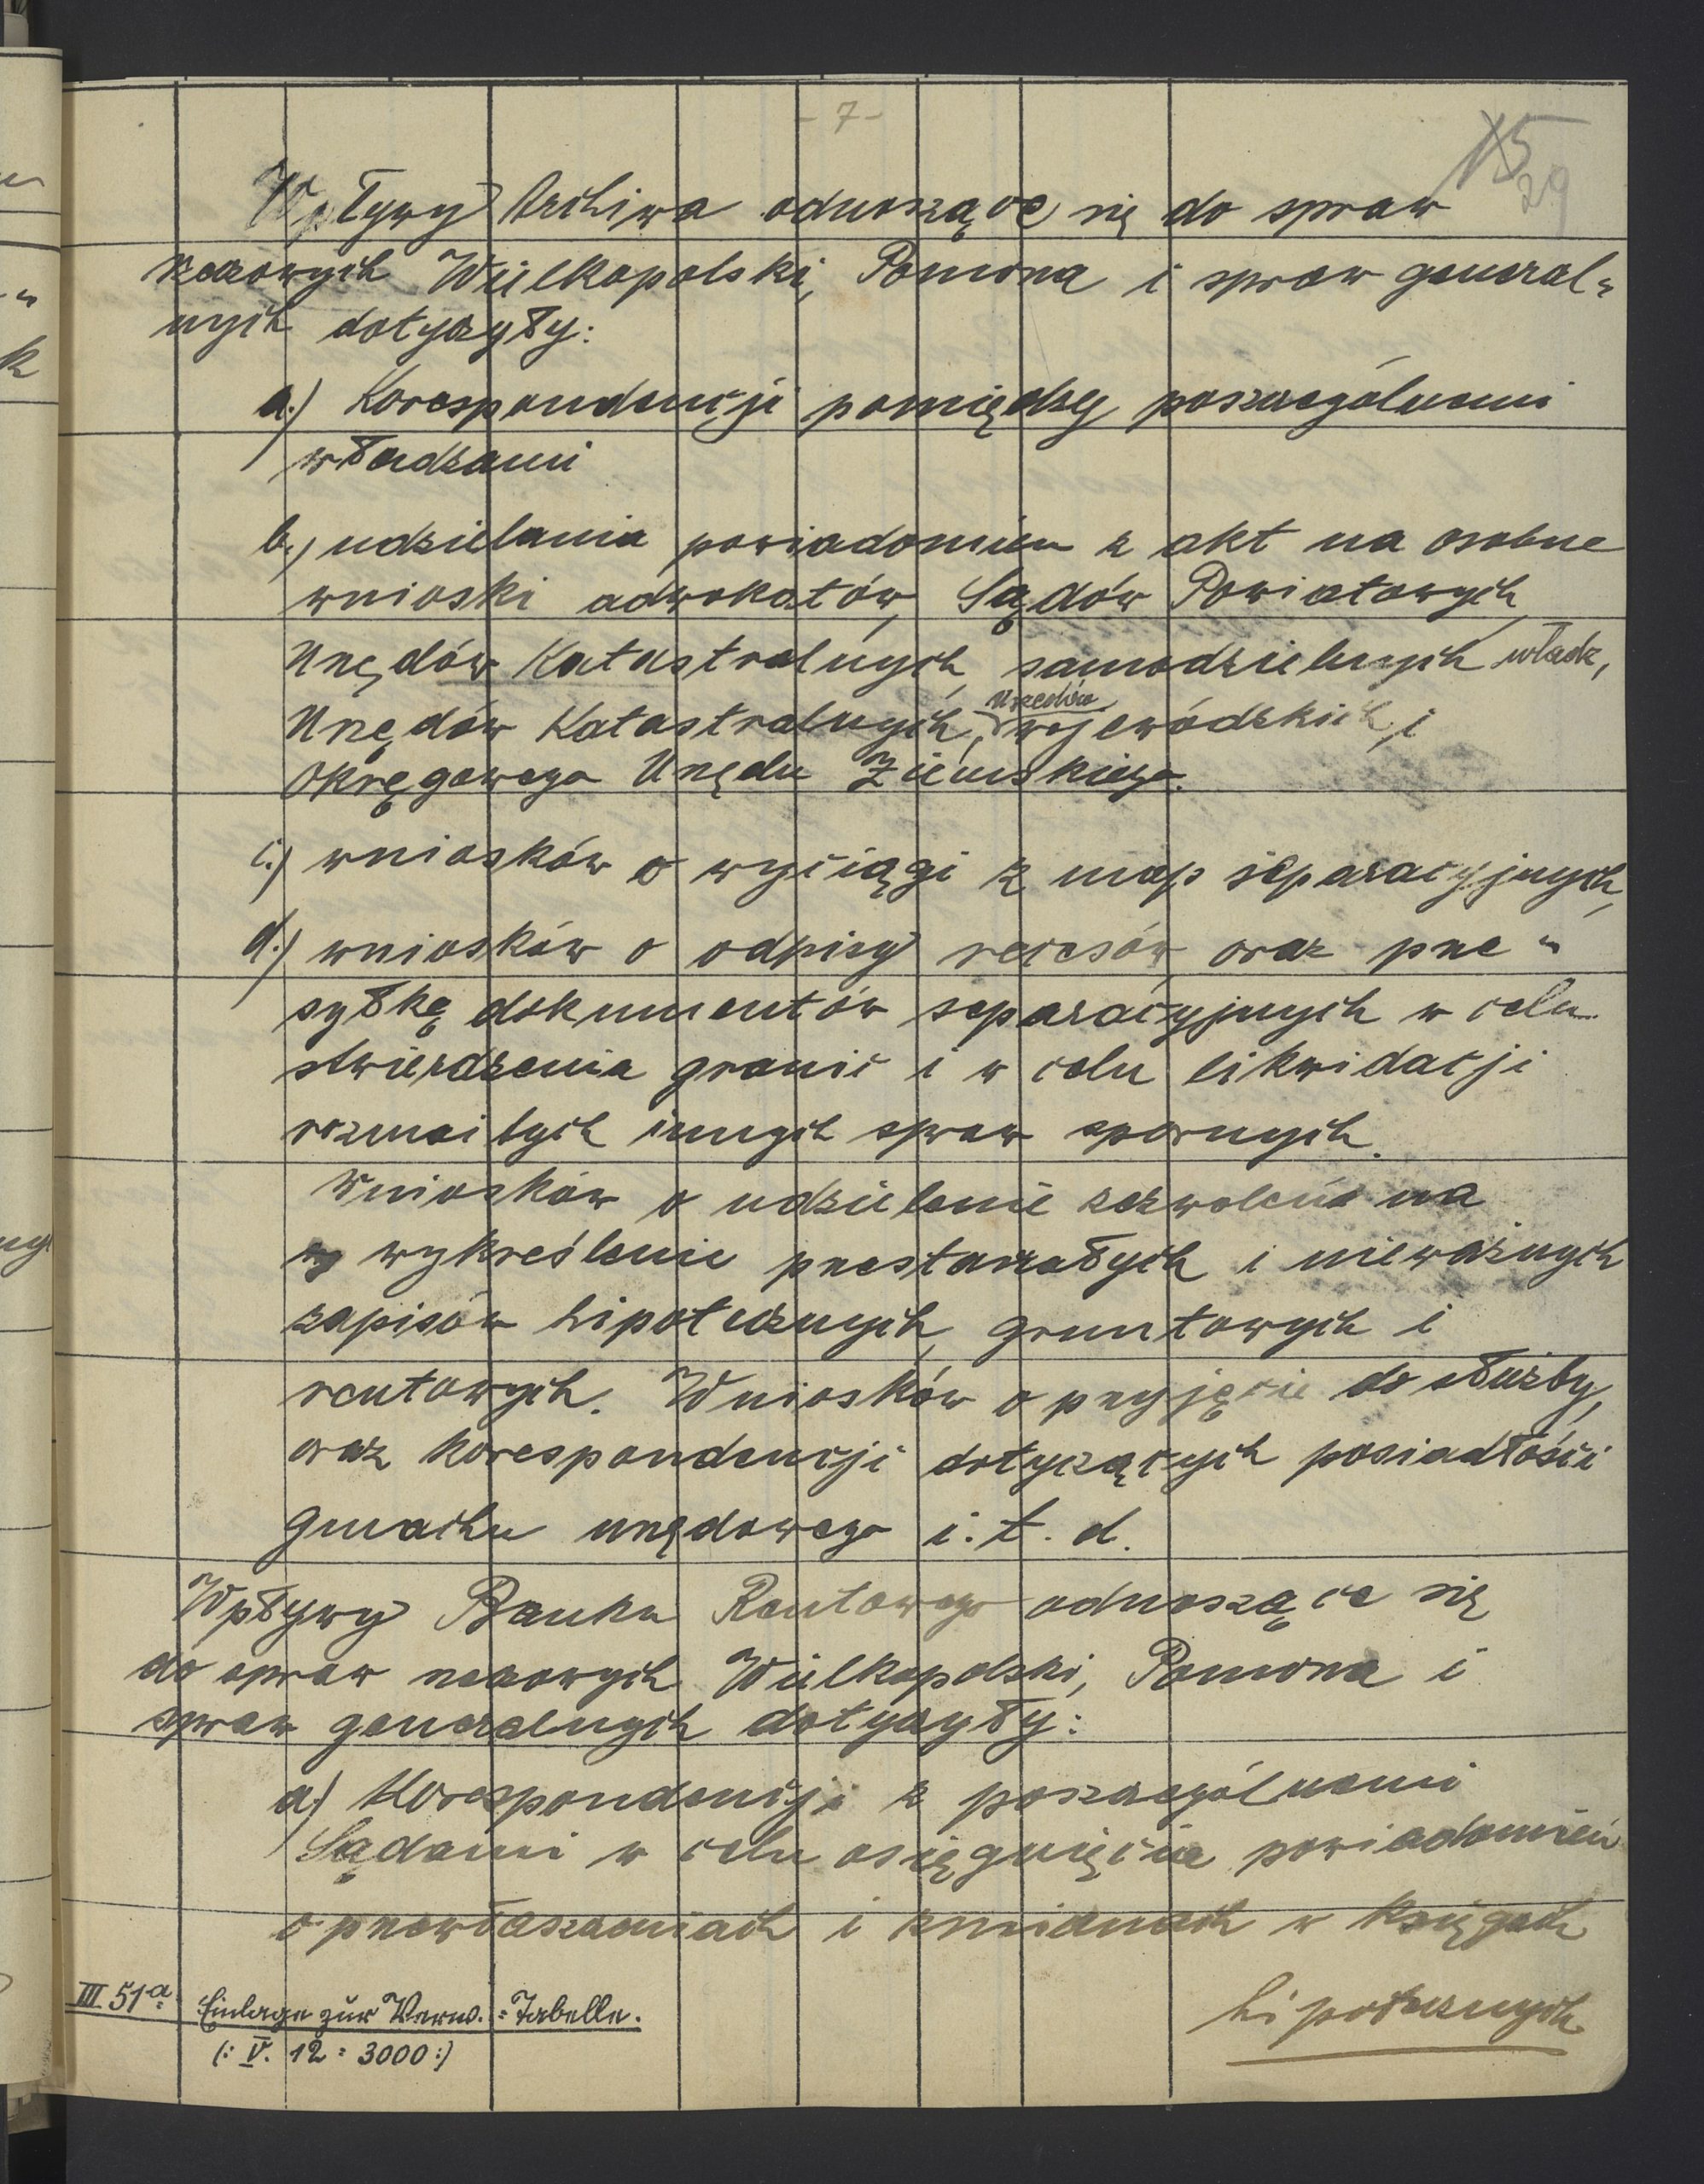 - 7 -
15
29
Wpływy Archiwa odnoszące się do spraw
rzeczowych Wielkopolski, Pomorza i spraw general=
nych dotyczyły:
a.) Korespondencji pomiędzy poszczególnemi
władzami
b.) udzielania powiadomień z akt na osobne
wnioski adwokatów, Sądów Powiatowych,
Urzędów Katastralnych, samodzielnych władz,
Urzędów Katastralnych, Urzędów wojewódzkich, i
Okręgowego Urzędu Ziemskiego.
c.) wniosków o wyciągi z map separacyjnych,
d.) wniosków o odpisy recesów oraz prze=
syłkę dokumentów separacyjnych w celu
stwierdzenia granic i w celu likwidacji
rozmaitych innych spraw spornych.
Wniosków o udzielenie zezwolenia na
wykreślenie przestarzałych i nieważnych
zapisów hipotecznych, gruntowych i
rentowych. Wniosków o przyjęcie do służby,
oraz korespondencji dotyczących posiadłości
gmachu urzędowego i. t. d.
Wpływy Banku Rentowego odnoszące się
do spraw rzeczowych Wielkopolski, Pomorza i
spraw generalnych dotyczyły:
a.) Korespondencji z poszczególnemi
Sądami w celu osiągnięcia powiadomień
o przewłaszczeniach i zmianach w księgach
hipotecznych
III 51a. Einlage zur Verw.=Tabelle.
(: V. 12 : 3000 :)